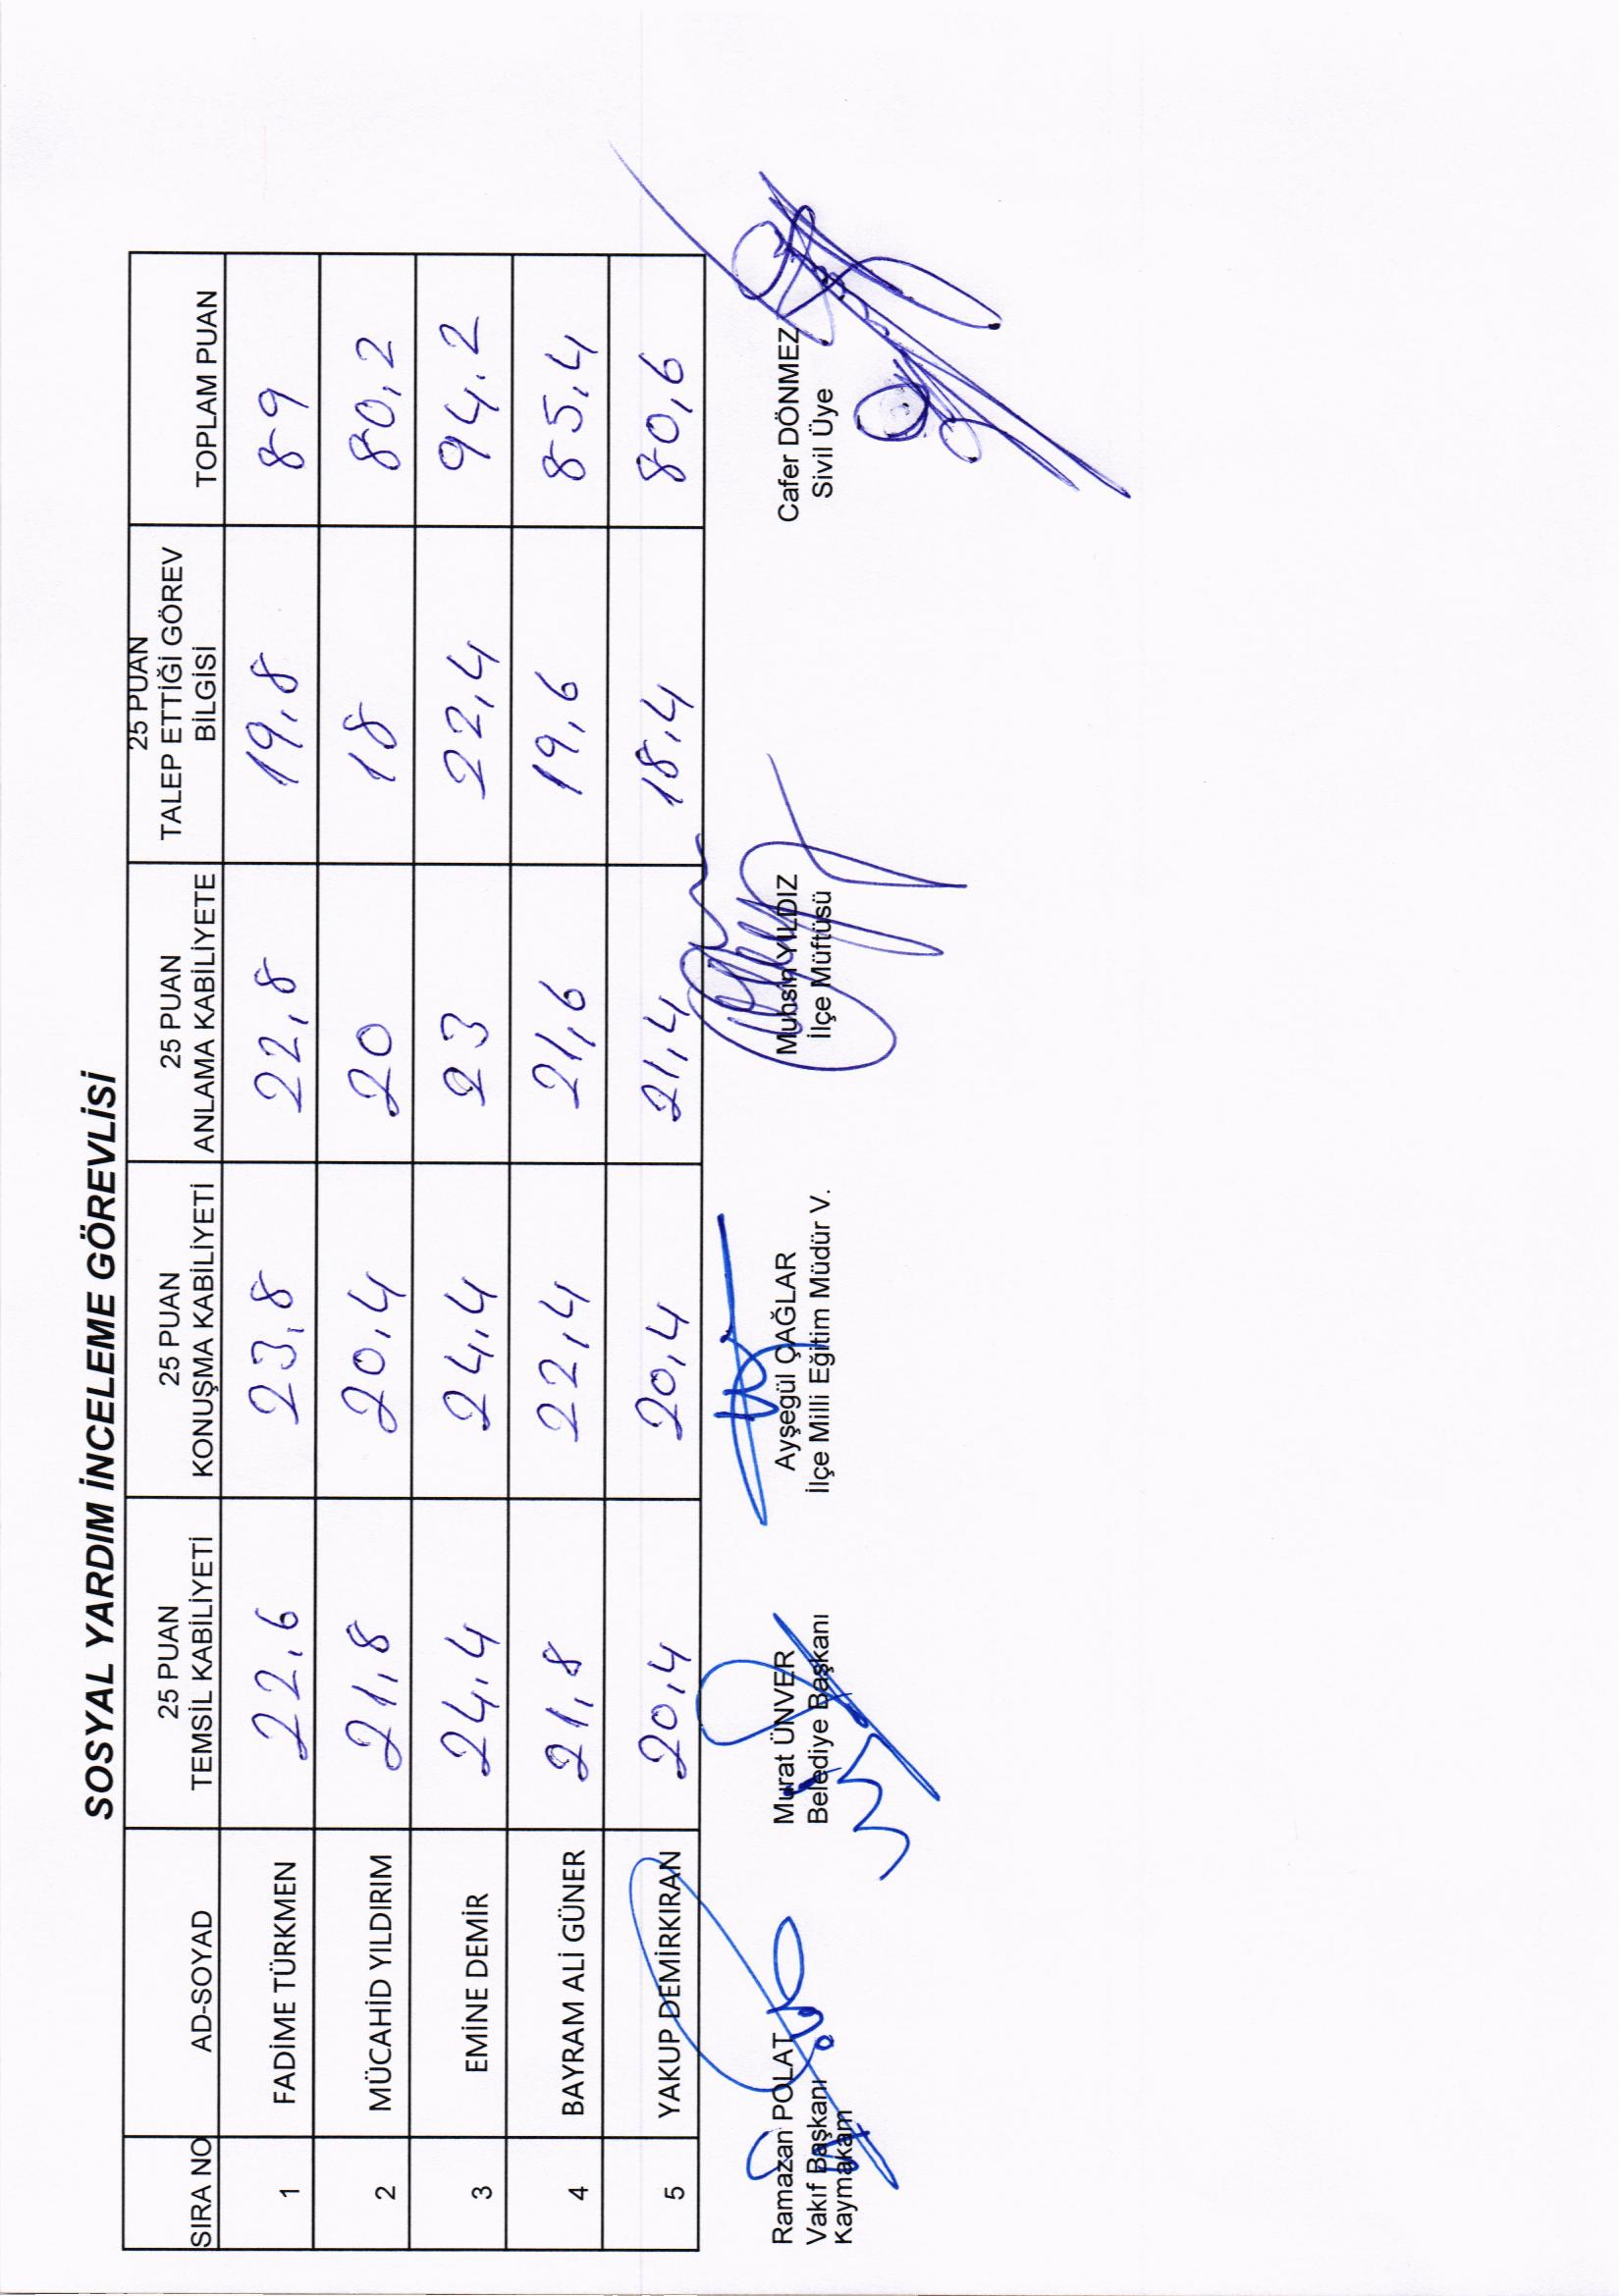 SOSYAL YARDIM İNCELEME GÖREVLİSİ
SIRA NO AD-SOYAD 25 PUAN TEMSİL KABİLİYETİ 25 PUAN KONUŞMA KABİLİYETİ 25 PUAN ANLAMA KABİLİYETE 25 PUAN TALEP ETTİĞİ GÖREV BİLGİSİ TOPLAM PUAN
1 FADİME TÜRKMEN 22,6 23,8 22,8 19,8 89
2 MÜCAHİD YILDIRIM 21,8 20,4 20 18 80,2
3 EMİNE DEMİR 24,4 24,4 23 22,4 94,2
4 BAYRAM ALİ GÜNER 21,8 22,4 21,6 19,6 85,4
5 YAKUP DEMİRKIRAN 20,4 20,4 21,4 18,4 80,6
Ramazan POLAT Murat ÜNVER Ayşegül ÇAĞLAR Muhsin YILDIZ Cafer DÖNMEZ
Vakıf Başkanı Belediye Başkanı İlçe Milli Eğitim Müdür V. İlçe Müftüsü Sivil Üye
Kaymakam